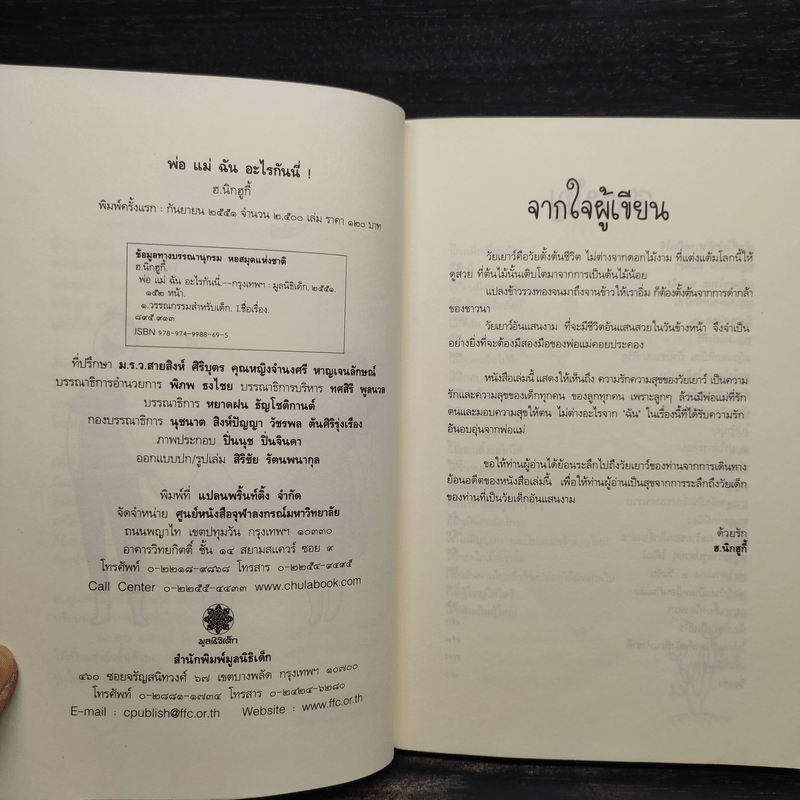 พ่อ แม่ ฉัน อะไรกันนี่ !
ฮ.นิกฮูกี้
พิมพ์ครั้งแรก : กันยายน ๒๕๕๑ จำนวน ๒,๕๐๐ เล่ม ราคา ๑๒๐ บาท
ข้อมูลทางบรรณานุกรม หอสมุดแห่งชาติ
ฮ.นิกฮูกี้.
พ่อ แม่ ฉัน อะไรกันนี่.--กรุงเทพฯ : มูลนิธิเด็ก, ๒๕๕๑.
๑๕๒ หน้า.
๑.วรรณกรรมสำหรับเด็ก. I.ชื่อเรื่อง.
๘๙๕.๙๑๓
ISBN 978-974-9988-69-5
ที่ปรึกษา ม.ร.ว.สายสิงห์ ศิริบุตร คุณหญิงจำนงศรี หาญเจนลักษณ์
บรรณาธิการอำนวยการ พิภพ ธงไชย บรรณาธิการบริหาร ทศสิริ พูลนวล
บรรณาธิการ หยาดฝน ธัญโชติกานต์
กองบรรณาธิการ นุชนาต สิงห์ปัญญา วัชรพล ตันศิริรุ่งเรือง
ภาพประกอบ ปิ่นนุช ปิ่นจินดา
ออกแบบปก/รูปเล่ม สิริชัย รัตนพนากุล
พิมพ์ที่ แปลนพริ้นท์ติ้ง จำกัด
จัดจำหน่าย ศูนย์หนังสือจุฬาลงกรณ์มหาวิทยาลัย
ถนนพญาไท เขตปทุมวัน กรุงเทพฯ ๑๐๓๓๐
อาคารวิทยกิตติ์ ชั้น ๑๔ สยามสแควร์ ซอย ๙
โทรศัพท์ ๐-๒๒๑๘-๙๘๖๘ โทรสาร ๐-๒๒๕๔-๙๔๙๕
Call Center ๐-๒๒๕๕-๔๔๓๓ www.chulabook.com
มูลนิธิเด็ก
สำนักพิมพ์มูลนิธิเด็ก
๔๖๐ ซอยจรัญสนิทวงศ์ ๖๗ เขตบางพลัด กรุงเทพฯ ๑๐๗๐๐
โทรศัพท์ ๐-๒๘๘๑-๑๗๓๔ โทรสาร ๐-๒๔๒๔-๖๒๘๐
E-mail : cpublish@ffc.or.th Website : www.ffc.or.th
จากใจผู้เขียน
วัยเยาว์คือวัยตั้งต้นชีวิต ไม่ต่างจากดอกไม้งาม ที่แต่งแต้มโลกนี้ให้
ดูสวย ที่ต้นไม้นั้นเติบโตมาจากการเป็นต้นไม้น้อย
แปลงข้าวรวงทองจนมาถึงจานข้าวให้เราอิ่ม ก็ต้องตั้งต้นจากการดำกล้า
ของชาวนา
วัยเยาว์อันแสนงาม ที่จะมีชีวิตอันแสนสวยในวันข้างหน้า จึงจำเป็น
อย่างยิ่งที่จะต้องมีสองมือของพ่อแม่คอยประคอง
หนังสือเล่มนี้ แสดงให้เห็นถึง ความรักความสุขของวัยเยาว์ เป็นความ
รักและความสุขของเด็กทุกคน ของลูกทุกคน เพราะลูกๆ ล้วนมีพ่อแม่ที่รัก
ตนและมอบความสุขให้ตน ไม่ต่างอะไรจาก "ฉัน" ในเรื่องนี้ที่ได้รับความรัก
อันอบอุ่นจากพ่อแม่
ขอให้ท่านผู้อ่านได้ย้อนระลึกไปถึงวัยเยาว์ของท่านจากการเดินทาง
ย้อนอดีตของหนังสือเล่มนี้ เพื่อให้ท่านผู้อ่านเป็นสุขจากการระลึกถึงวัยเด็ก
ของท่านที่เป็นวัยเด็กอันแสนงาม
ด้วยรัก
ฮ.นิกฮูกี้